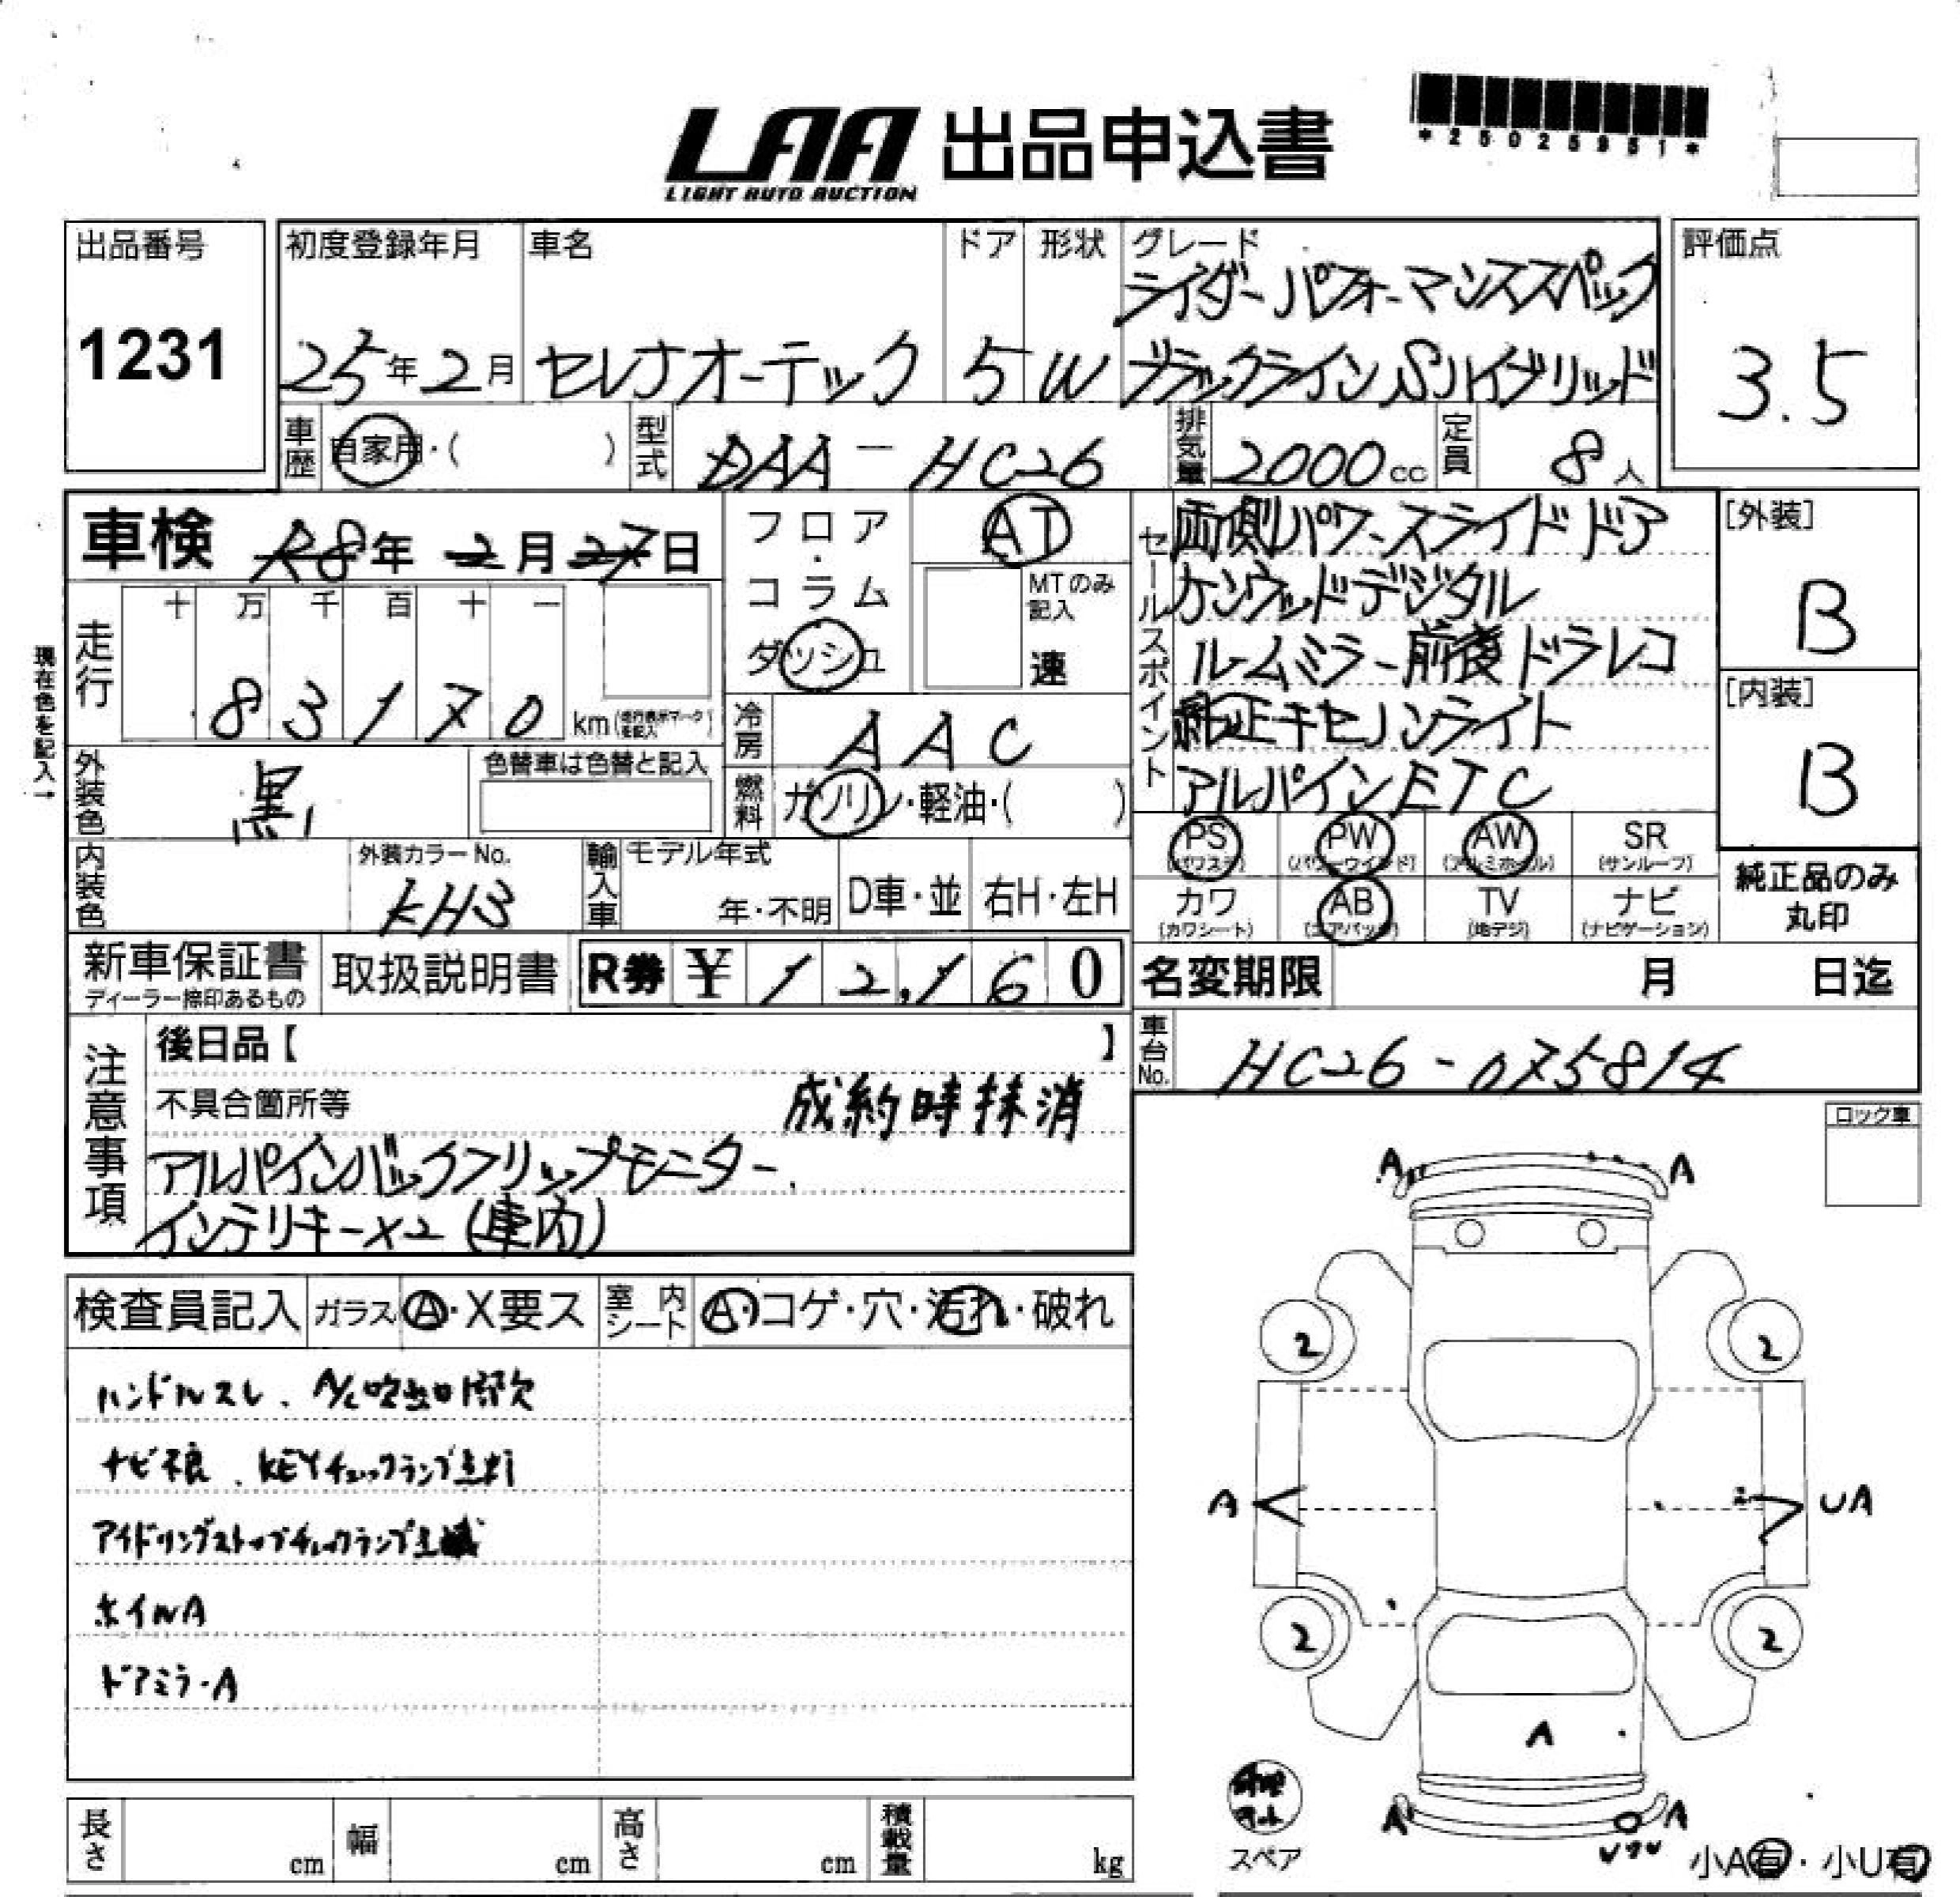 LAA 出品申込書
LIGHT AUTO AUCTION
*25025951*
出品番号
1231
初度登録年月
25年2月
車名
セレナオーテック
ドア
5
形状
W
グレード
ライダーパフォーマンススペック
ブラックラインSハイブリッド
評価点
3.5
車歴
自家用・( )
型式
DAA-HC26
排気量
2000cc
定員
8人
車検 R8年2月27日
走行
十 万 千 百 十 一
83170 km
現在色を記入→
フロア・コラム
ダッシュ
AT
MTのみ記入
速
冷房
AAC
燃料
ガソリン・軽油・( )
外装色
黒
色替車は色替と記入
内装色
外装カラーNo.
KH3
輸入車
モデル年式
年・不明
D車・並
右H・左H
セールスポイント
両側パワースライドドア
ケンウッドデジタル
ルームミラー前後ドラレコ
純正キセノンライト
アルパインETC
[外装]
B
[内装]
B
PS (パワステ)
PW (パワーウインド)
AW (アルミホイル)
SR (サンルーフ)
カワ (カワシート)
AB (エアバック)
TV (地デジ)
ナビ (ナビゲーション)
純正品のみ
丸印
新車保証書
ディーラー捺印あるもの
取扱説明書
R券 ¥12,160
名変期限 月 日迄
車台No.
HC26-075814
注意事項
後日品【 】
不具合箇所等
成約時抹消
アルパインバックフリップモニター
インテリキー×2(車内)
ロック車
検査員記入
ガラス Ⓐ・X要ス
室内シート
A・コゲ・穴・汚れ・破れ
ハンドルスレ、A/C吹出口1部欠
ナビ不良、KEYチェックランプ点灯
アイドリングストップチェックランプ点滅
ホイルA
ドアミラーA
A A
2 2
A UA
2 2
A
A A
スペア
小A有・小U有
長さ cm
幅 cm
高さ cm
積載量 kg